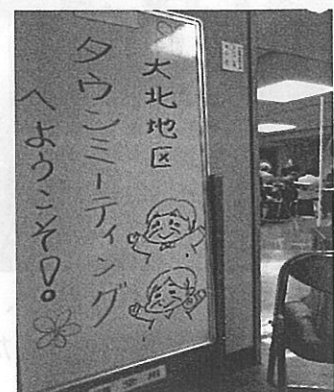 大北地区
タウンミーティング
へようこそ!